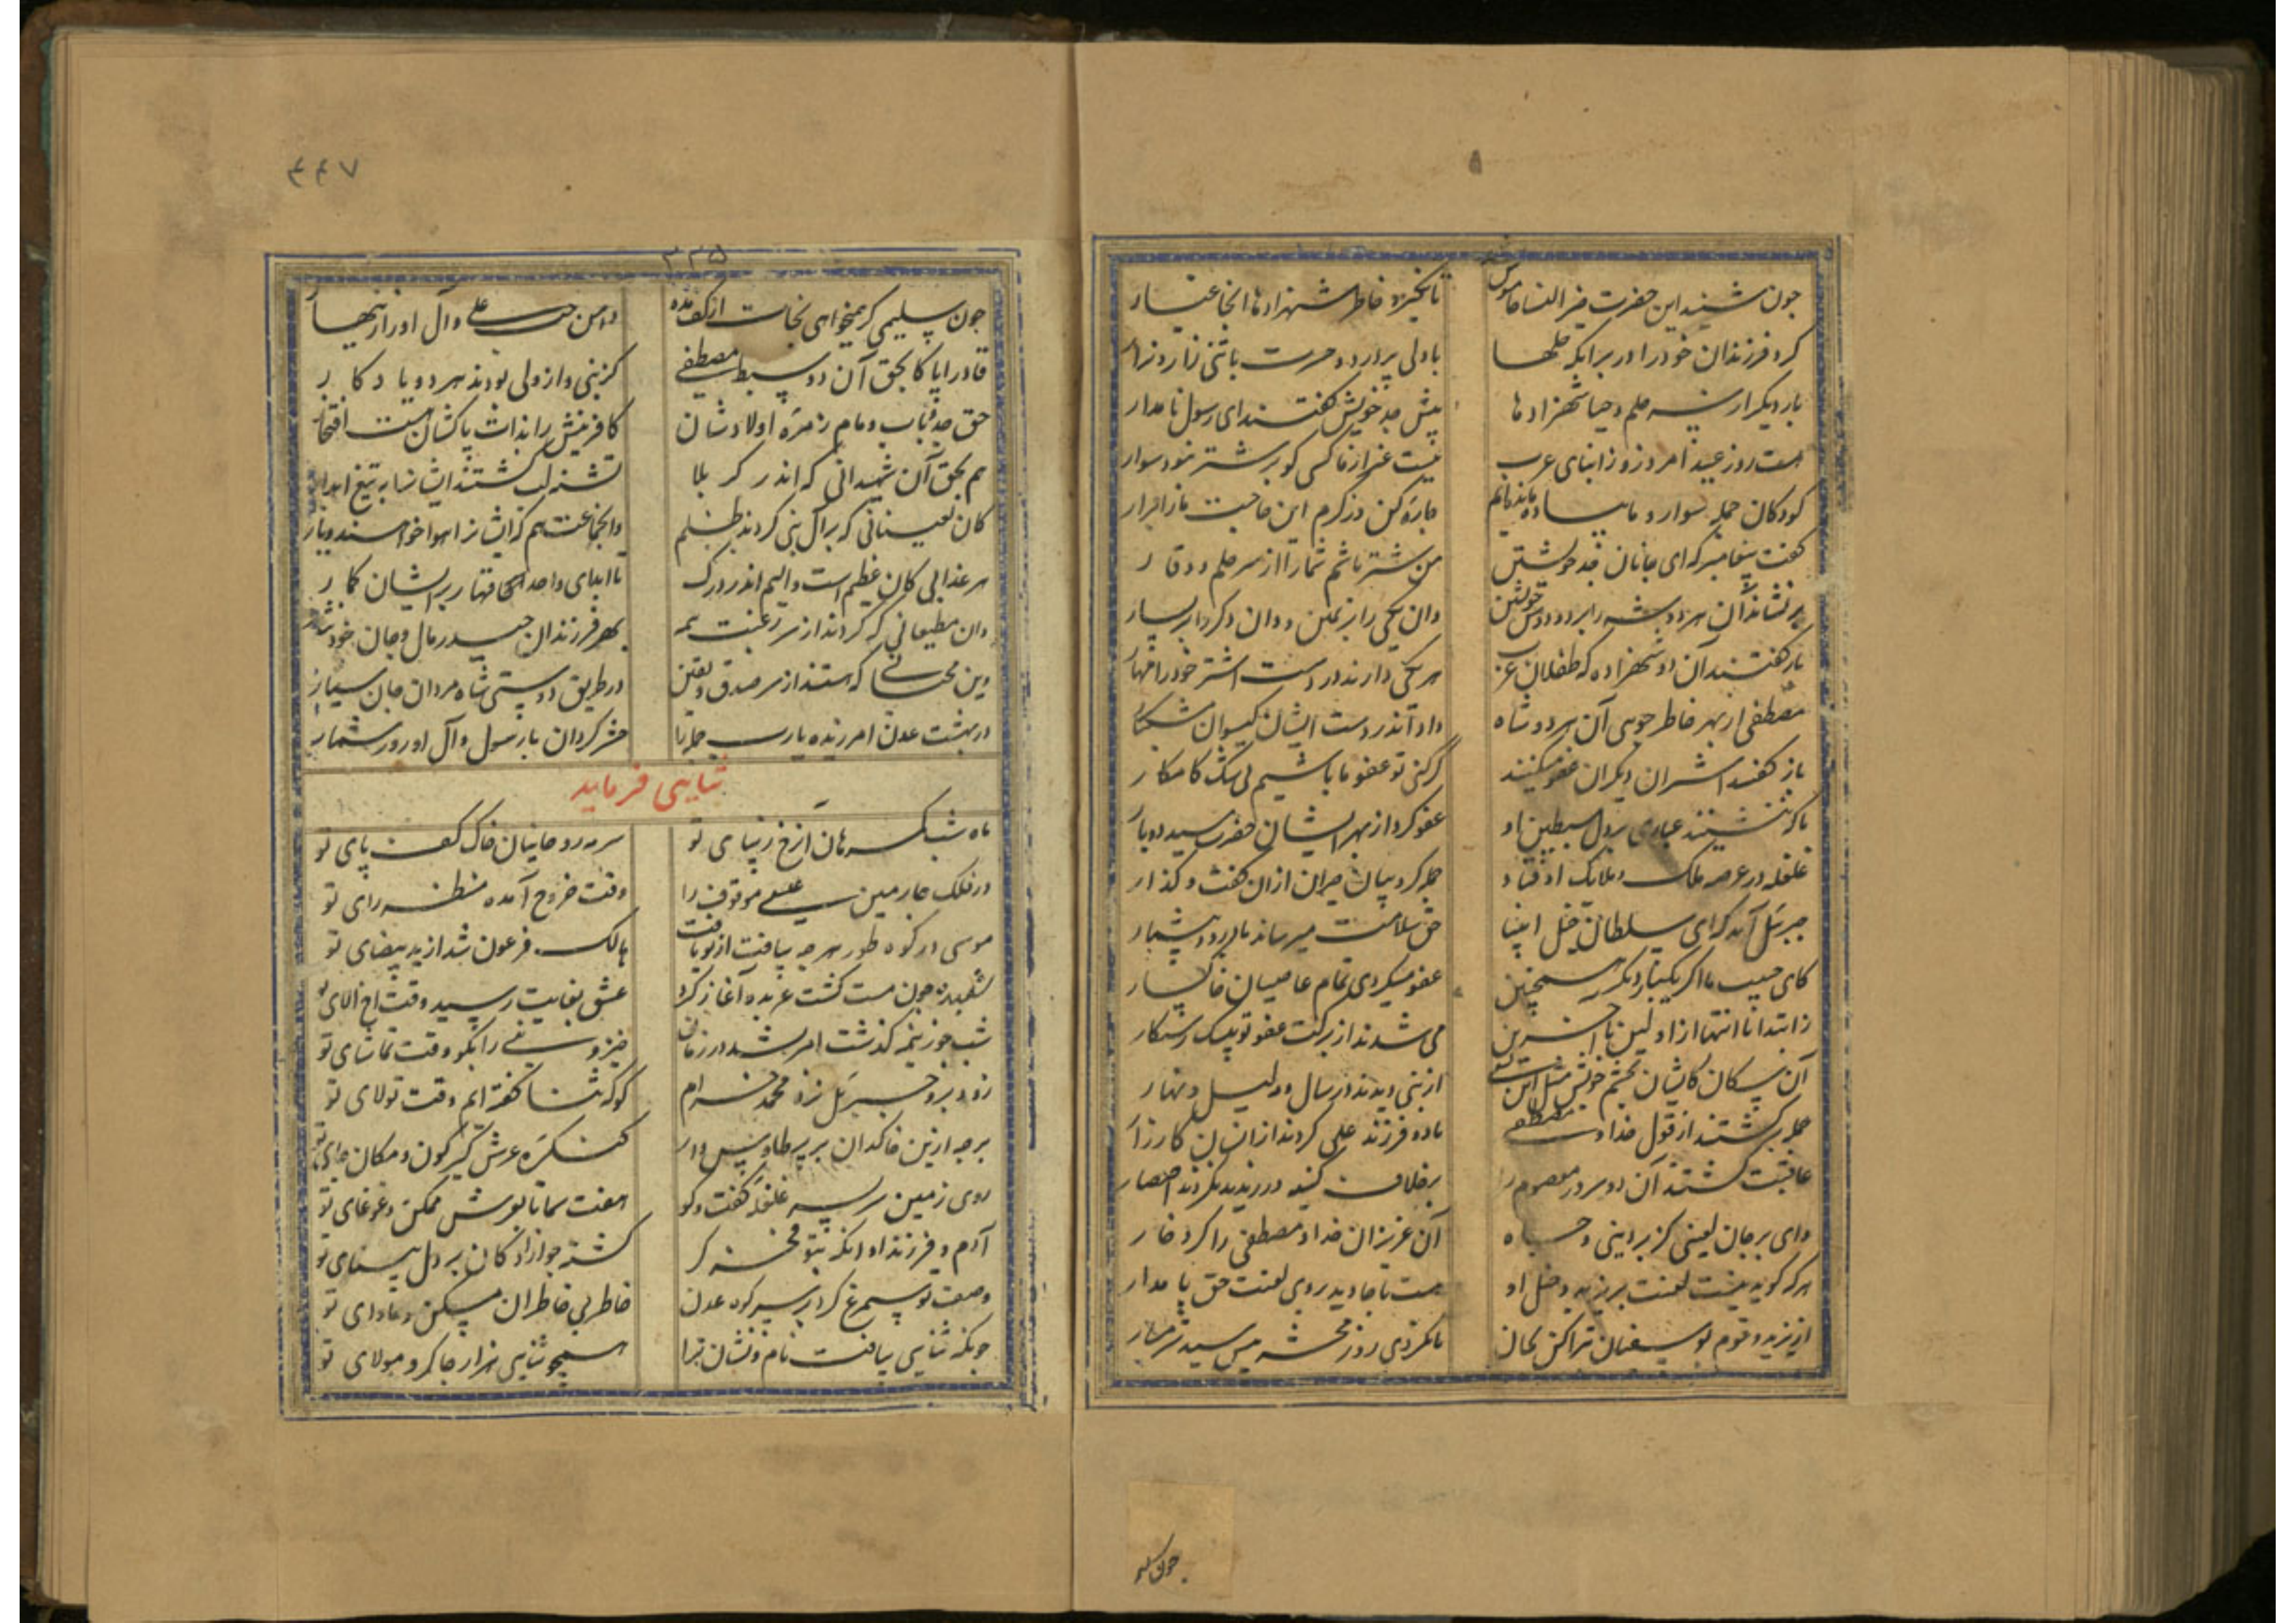 چون شنید این حضرت خیر النسا خاموش
تا نگیرد خاطر شهزادها انجا غبار
کرد فرزندان خود را در بر انکه جلها
با دلی پر درد و حسرت با تنی زار و نزار
بار دیگر از سر حلم و حیا شهزادها
پیش جد خویش گفتند ای رسول نامدار
هست روز عید امروز و ز ابنای عرب
نیست غیر از ما کسی کو بر شتر نبود سوار
کودکان جمله سوار و ما پیاده مانده‌ایم
چاره کن از کرم این حاجت ما را برار
گفت پیغامبر که ای جانان جد خویشتن
من شتر باشم شما را از سر حلم و وقار
بر نشاند آن هر دو شه را بر دو دوش خویشتن
وان یکی را بر یمین و وان دگر را بر یسار
باز گفتند آن دو شهزاده که طفلان عرب
هر یکی دارند در دست اشتر خود را مهار
مصطفی از بهر خاطر جویی آن هر دو شاه
داد اندر دست ایشان گیسوان مشکبار
باز گفتند اشتران دیگران عفو میکنند
گر کنی تو عفو ما باشیم بی شک کامکار
تا که ننشیند غباری بر دل سبطین او
عفو کرد از بهر ایشان حضرت سید دو بار
غلغله در عرصه ملک و ملایک اوفتاد
جمله کروبیان حیران ازان گفت و گذار
جبرئیل آمد که ای سلطان خیل انبیا
حق سلامت میرساند با درود بیشمار
کای حبیب ما اگر یکبار دیگر همچنین
عفو میکردی تمام عاصیان خاکسار
ز ابتدا تا انتها از اولین تا آخرین
می شدند از برکت عفو تو یک یک رستگار
آن سگان کایشان بچشم خویش مثل این بسی
از نبی دیدند در سال و مه لیل و نهار
جمله برگشتند از قول خدا و مصطفی
با دو فرزند علی کردند ازانسان کارزار
عاقبت کشتند آن دو سرور معصوم را
بر خلاف
وای بر جان لعینی کز بر دینی و جاه
آن عزیزان خدا و مصطفی را کرد خار
هر که گوید نیست لعنت بر یزید و خیل او
هست تا جاوید بر وی لعنت حق پایدار
از یزید و قوم بو سفیان تبرا کن بجان
تا نگردی روز محشر پیش سید شرمسار
چون سلیمی
۴۴۷
۳۳۵
چون سلیمی گر همیخواهی نجات از کف مده
دامن حب علی و آل او را زینهار
قادرا پاکا بحق آن دو سبط مصطفی
کز نبی و از ولی بودند هر دو یادکار
حق جد و باب و مام و زمره اولادشان
کافرینش را بذات پاکشان هست افتخار
هم بحق آن شهیدانی که اندر کربلا
تشنه لب گشتند ایشان را به تیغ ابدار
کان لعینانی که بر آل نبی کردند ظلم
وانجماعت هم که ایشان را هوا خواهند و یار
هر عذابی کان عظیم است و الیم اندر درک
تا ابد ای واحد القهار بر ایشان گمار
وان مطیعانی که کردند از سر رغبت همه
بهر فرزندان حیدر مال و جان خود نثار
وین محبانی که هستند از سر صدق و یقین
در طریق دوستی شاه مردان جان سپار
در بهشت عدن امرزیده یا رب جمله را
حشر گردان با رسول و آل او روز شمار
ثنایی فرماید
ماه شب گمرهان از رخ زیبای تو
سرمه روحانیان خاک کف پای تو
در فلک چارمین عیسی موقوف را
وقت خروج آمده منتظر رای تو
موسی در کوه طور هر چه بیافت از تو یافت
هالک فرعون شد از ید بیضای تو
شعبده چون مست گشت عربده آغاز کرد
عشق بغایت رسید وقت
شب چو ز نیمه گذشت امر بشد در زمان
خیز و نبی را بگو وقت تماشای تو
زود برو جبرئیل نزد محمد خرام
گو که ثنا گفته‌ایم وقت تولای تو
بر جه ازین خاکدان بر پر طاوس وار
کنگره عرش گیر کون و مکان جای تو
روی زمین سر بسر غلغله گفت و گو
هفت سما تا بعرش ممکن و غوغای تو
آدم و فرزند او انکه بتو فخر کر
گشته چو ازادگان بر دل بینای تو
وصف تو سیمرغ کرد بر سر کوه عدن
خاطر بی خاطران مسکن و ماوای تو
چونکه ثنایی بیافت نام و نشان ترا
همچو ثنایی هزار چاکر و مولای تو